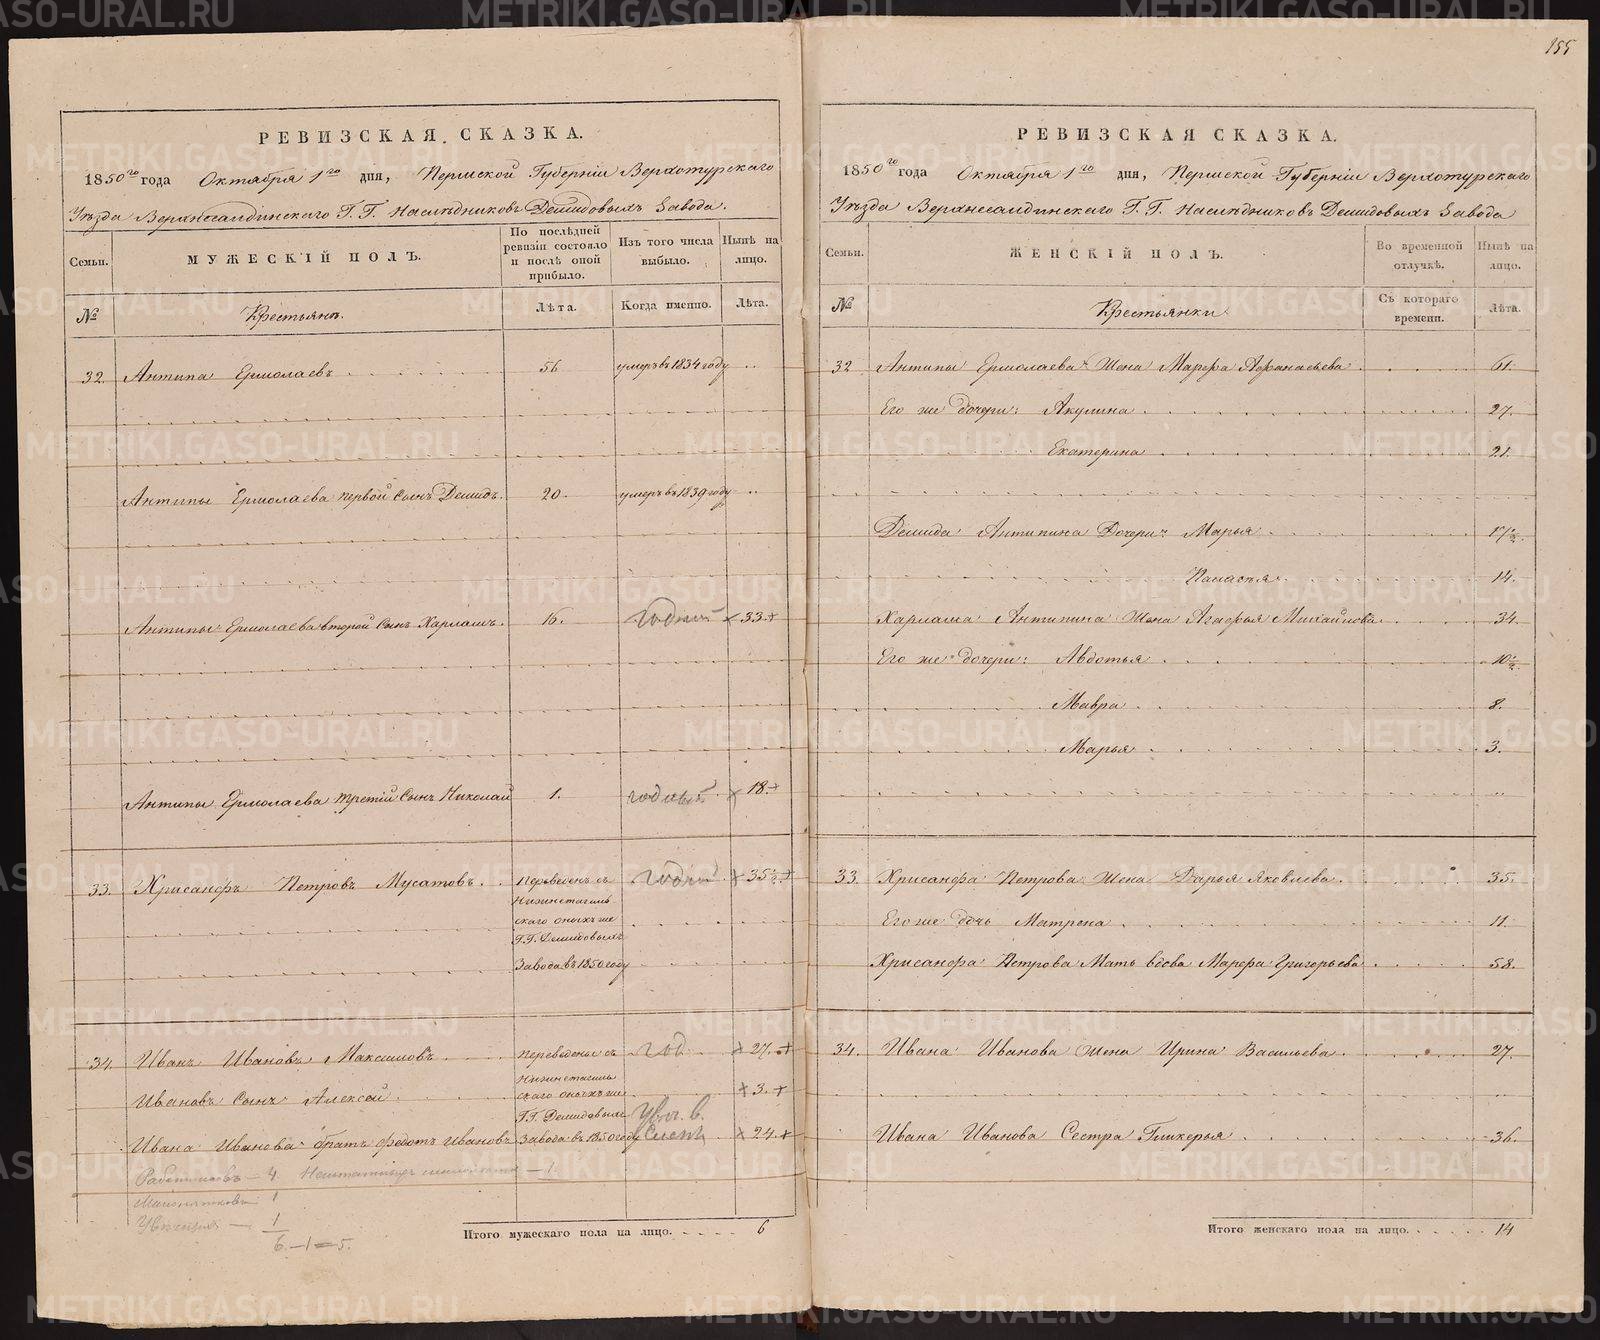 155
РЕВИЗСКАЯ СКАЗКА.
1850го года Октября 1го дня, Пермской Губерніи Верхотурскаго
Уѣзда Верхнесалдинскаго Г.Г. Наслѣдниковъ Демидовыхъ Завода.
Семьи.
МУЖЕСКІЙ ПОЛЪ.
По послѣдней ревизіи состояло и послѣ оной прибыло.
Изъ того числа выбыло.
Нынѣ на лицо.
№
Крестьянъ.
Лѣта.
Когда именно.
Лѣта.
32. Антипа Ермолаевъ 56 умеръ въ 1834 году
Антипы Ермолаева первой сынъ Демидъ. 20. умеръ въ 1839 году
Антипы Ермолаева второй сынъ Харламъ. 16. годный 33
Антипы Ермолаева третій сынъ Николай 1. годный 18
33. Хрисанфъ Петровъ Мусатовъ. Переведенъ съ годный 35½
Нижнетагиль-
скаго оныхъ же
Г.Г. Демидовыхъ
Завода въ 1850 году
34. Иванъ Ивановъ Максимовъ Переведены съ год. 27.
Нижнетагиль
Ивановъ сынъ Алексей скаго оныхъ же 3.
Г.Г. Демидовыхъ
Ивана Иванова братъ Федотъ Ивановъ Завода въ 1850 году 24
Работниковъ — 4 — 1
1
1
6 — 1 = 5.
Итого мужескаго пола на лицо. 6
РЕВИЗСКАЯ СКАЗКА.
1850го года Октября 1го дня, Пермской Губерніи Верхотурскаго
Уѣзда Верхнесалдинскаго Г.Г. Наслѣдниковъ Демидовыхъ Завода
Семьи.
ЖЕНСКІЙ ПОЛЪ.
Во временной отлучкѣ.
Нынѣ на лицо.
№
Крестьянки.
Съ котораго времени.
Лѣта.
32 Антипы Ермолаева Жена Марфа Афанасьева 61.
Его же дочери: Акулина 27.
Екатерина 21.
Демида Антипина Дочери: Марья 17½.
Паласья 14.
Харлама Антипина Жена Агафья Михайлова 34.
Его же дочери: Авдотья 10½
Мавра 8.
Марья 3.
33. Хрисанфа Петрова Жена Дарья Яковлева. 35.
Его же дочь Матрена 11.
Хрисанфа Петрова Мать вдова Марфа Григорьева 58.
34. Ивана Иванова Жена Ирина Васильева 27.
Ивана Иванова Сестра Гликерья 36.
Итого женскаго пола на лицо. 14
METRIKI.GASO-URAL.RU